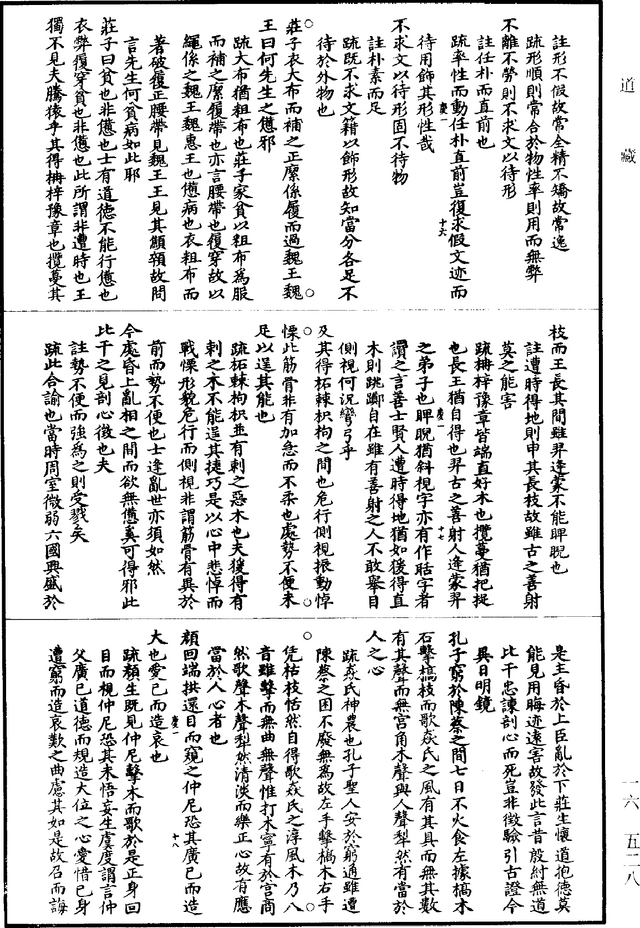 道藏
註形不假故常全精不矯故常逸
疏形順則常合於物性率則用而無弊
不離不勞則不求文以待形
註任朴而直前也
疏率性而動任朴直前豈復求假文迹而
待用飾其形性哉
慶一
十六
不求文以待形固不待物
註朴素而足
疏既不求文籍以飾形故知當分各足不
待於外物也
莊子衣大布而補之正緳係履而過魏王魏
王曰何先生之憊邪
疏大布猶粗布也莊子家貧以粗布為服
而補之緳履帶也亦言腰帶也履穿故以
繩係之魏王魏惠王也憊病也衣粗布而
著破履正腰帶見魏王王見其顦顇故問
言先生何貧病如此耶
莊子曰貧也非憊也士有道德不能行憊也
衣弊履穿貧也非憊也此所謂非遭時也王
獨不見夫騰猿乎其得柟梓豫章也攬蔓其
枝而王長其間雖羿逢蒙不能睥睨也
註遭時得地則申其長枝故雖古之善射
莫之能害
疏柟梓豫章皆端直好木也攬蔓猶把捉
也長王猶自得也羿古之善射人逢蒙羿
之弟子也睥睨猶斜視字亦有作眳字者
慶一
十七
讀之言善士賢人遭時得地猶如猨得直
木則跳躑自在雖有善射之人不敢舉目
側視何況彎弓乎
及其得柘棘枳枸之間也危行側視振動悼
慄此筋骨非有加急而不柔也處勢不便未
足以逞其能也
疏柘棘枳枸並有刺之惡木也夫猨得有
刺之木不能逞其捷巧是以心中悲悼而
戰慄形貌危行而側視非謂筋骨有異於
前而勢不便也士逢亂世亦須如然
今處昏上亂相之間而欲無憊奚可得邪此
比干之見剖心徵也夫
註勢不便而強為之則受戮矣
疏此合諭也當時周室微弱六國興盛於
是主昏於上臣亂於下莊生懷道抱德莫
能見用晦迹遠害故發此言昔殷紂無道
比干忠諫剖心而死豈非徵驗引古證今
異日明鏡
孔子窮於陳蔡之間七日不火食左據槁木
右擊槁枝而歌猋氏之風有其具而無其數
有其聲而無宮角木聲與人聲犁然有當於
人之心
疏猋氏神農也孔子聖人安於窮通雖遭
陳蔡之困不廢無為故左手擊槁木右手
凭枯枝恬然自得歌猋氏之淳風木乃八
音雖擊而無曲無聲惟打木寧有於宮商
然歌聲木聲犁然清淡而樂正心故有應
當於人心者也
顏回端拱還目而窺之仲尼恐其廣己而造
慶一
十八
大也愛己而造哀也
疏顏生既見仲尼擊木而歌於是正身回
目而視仲尼恐其未悟妄生虞度謂言仲
父廣己道德而規造大位之心愛惜己身
遭窮而造哀歎之曲慮其如是故召而誨
一六 五二八